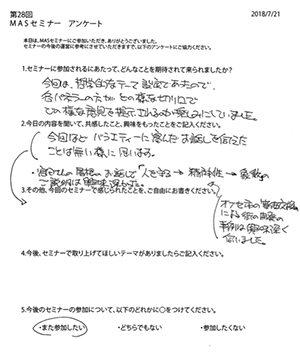 第28回
2018/7/21
MASセミナー アンケート
本日は、MASセミナーにご参加いただき、ありがとうございました。
セミナーの今後の運営に参考にさせていただきますで、以下のアンケートにご協力ください。
1.セミナーに参加されるにあたって、どんなことを期待されて来られましたか?
今回は、哲学的なテーマ設定であったので、
各パネラーの方がどの様な切り口で
どの様な意見を提示されるのか楽しみにしていました。
2.今日の内容を聞いて、共感したこと、興味をもったことをご記入ください。
今回ほどバラエティーに富んだお話しを伺えた
ことは無い様に思います。
3.その他、今回のセミナーで感じられたことを、ご自由にお書きください。
4.今後、セミナーで取り上げてほしいテーマがありましたらご記入ください。
5.今後のセミナーの参加について、以下のどれかに○をつけてください。
・また参加したい ・どちらでもない ・参加したくない